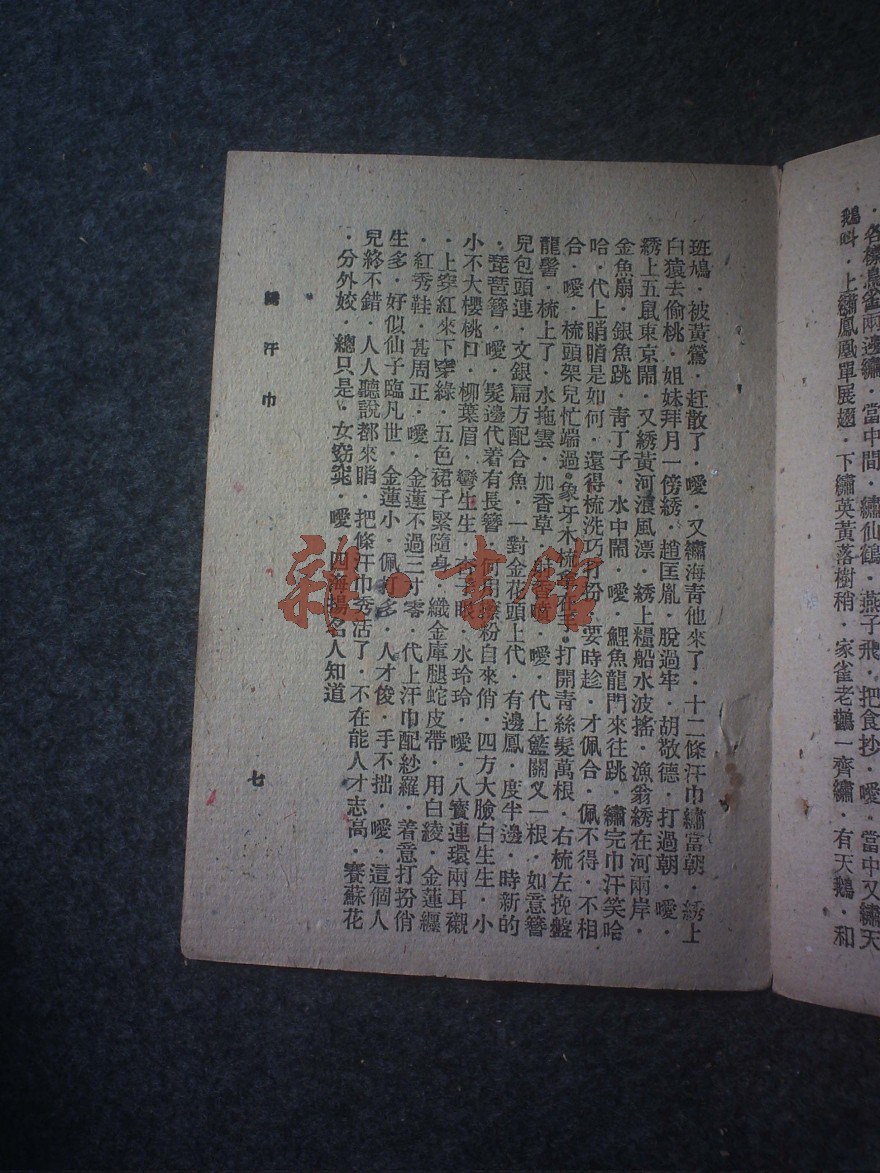 ・各樣鳥雀兩邊繡・當中間・繡仙鶴・燕子飛・把食抄・噯・當中又繡天
鵝・上繡鳳凰單展翅・下繡英黃落樹稍・家雀老鸛一齊繡・有天鵝・和
班鳩・被黃鶯・赶散了・噯・又繡海靑他來了・十二條汗巾繡當朝・綉上
白猿去偷桃・姐妹拜月一傍綉・趙匡胤・脫過牢・胡敬德・打過朝・噯・
綉上五鼠東京鬧・又綉黃河滾風漂・綉上糧船水波搖・漁翁綉在河兩岸・
金魚崩・銀魚跳・靑丁子・水中鬧・噯・鯉魚龍門來往跳・繡完巾汗笑哈
哈・代上哨哨是如何・還得梳洗巧打扮・要時趁・才佩合・佩不得・不相
合・噯・梳頭架兒忙端過・象牙木梳拿在手・打開靑絲髮萬根・右梳左挽盤
龍髻・梳上了・水拖雲・加香草・噯・代上籃關叉一根・如意簪
兒包頭連・文銀扁方配合魚・一對金花頭上代・有邊鳳・度半邊・時新的
・琵琶簪・噯・髮邊代着有長簪・何用擦粉自來俏・四方大臉白生生・小
小不大櫻桃口・柳葉眉・彎生生・杏子眼・水玲玲・噯・八寶連環兩耳襯
・上穿紅來下穿綠・五色裙子緊隨身・織金庫腿蛇皮帶・用白綾・金蓮纏
・紅秀鞋・甚周正・噯・金蓮不過三寸零・代上汗巾配紗羅・着意打扮俏
生多・好似仙子臨凡世・金蓮小・佩打多・人才俊・手不拙・噯・這個人
兒終不錯・人人聽說都來哨・把條汗巾秀活了・不在能人才志高・賽蘇花
・分外姣・總只是・女窈窕・噯・四海揚名人知道
繡汗巾
七
雜・書館